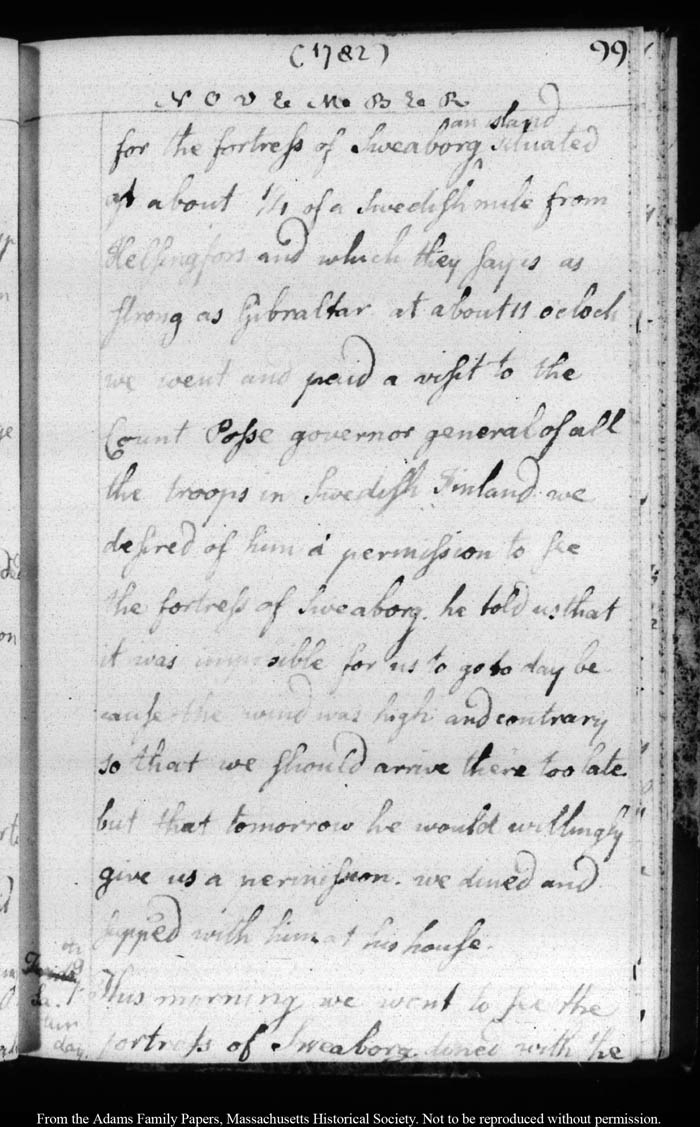 (1782)
99
NOVEMBER
an island
for the fortress of Sweaborg situated
at about 1/4 of a Swedish mile from
Helsingfors and which they say is as
strong as Gibraltar at about 11 oclock
we went and paid a visit to the
Count Posse governor general of all
the troops in Swedish Finland. we
desired of him a permission to see
the fortress of Sweaborg. he told us that
it was impossible for us to go to day be
cause the wind was high and contrary
so that we should arrive there too late
but that tomorrow he would willingly
give us a permission. we dined and
supp'd with him at his house.
This morning we went to see the
fortress of Sweaborg dined with the
day.
From the Adams Family Papers, Massachusetts Historical Society. Not to be reproduced without permission.